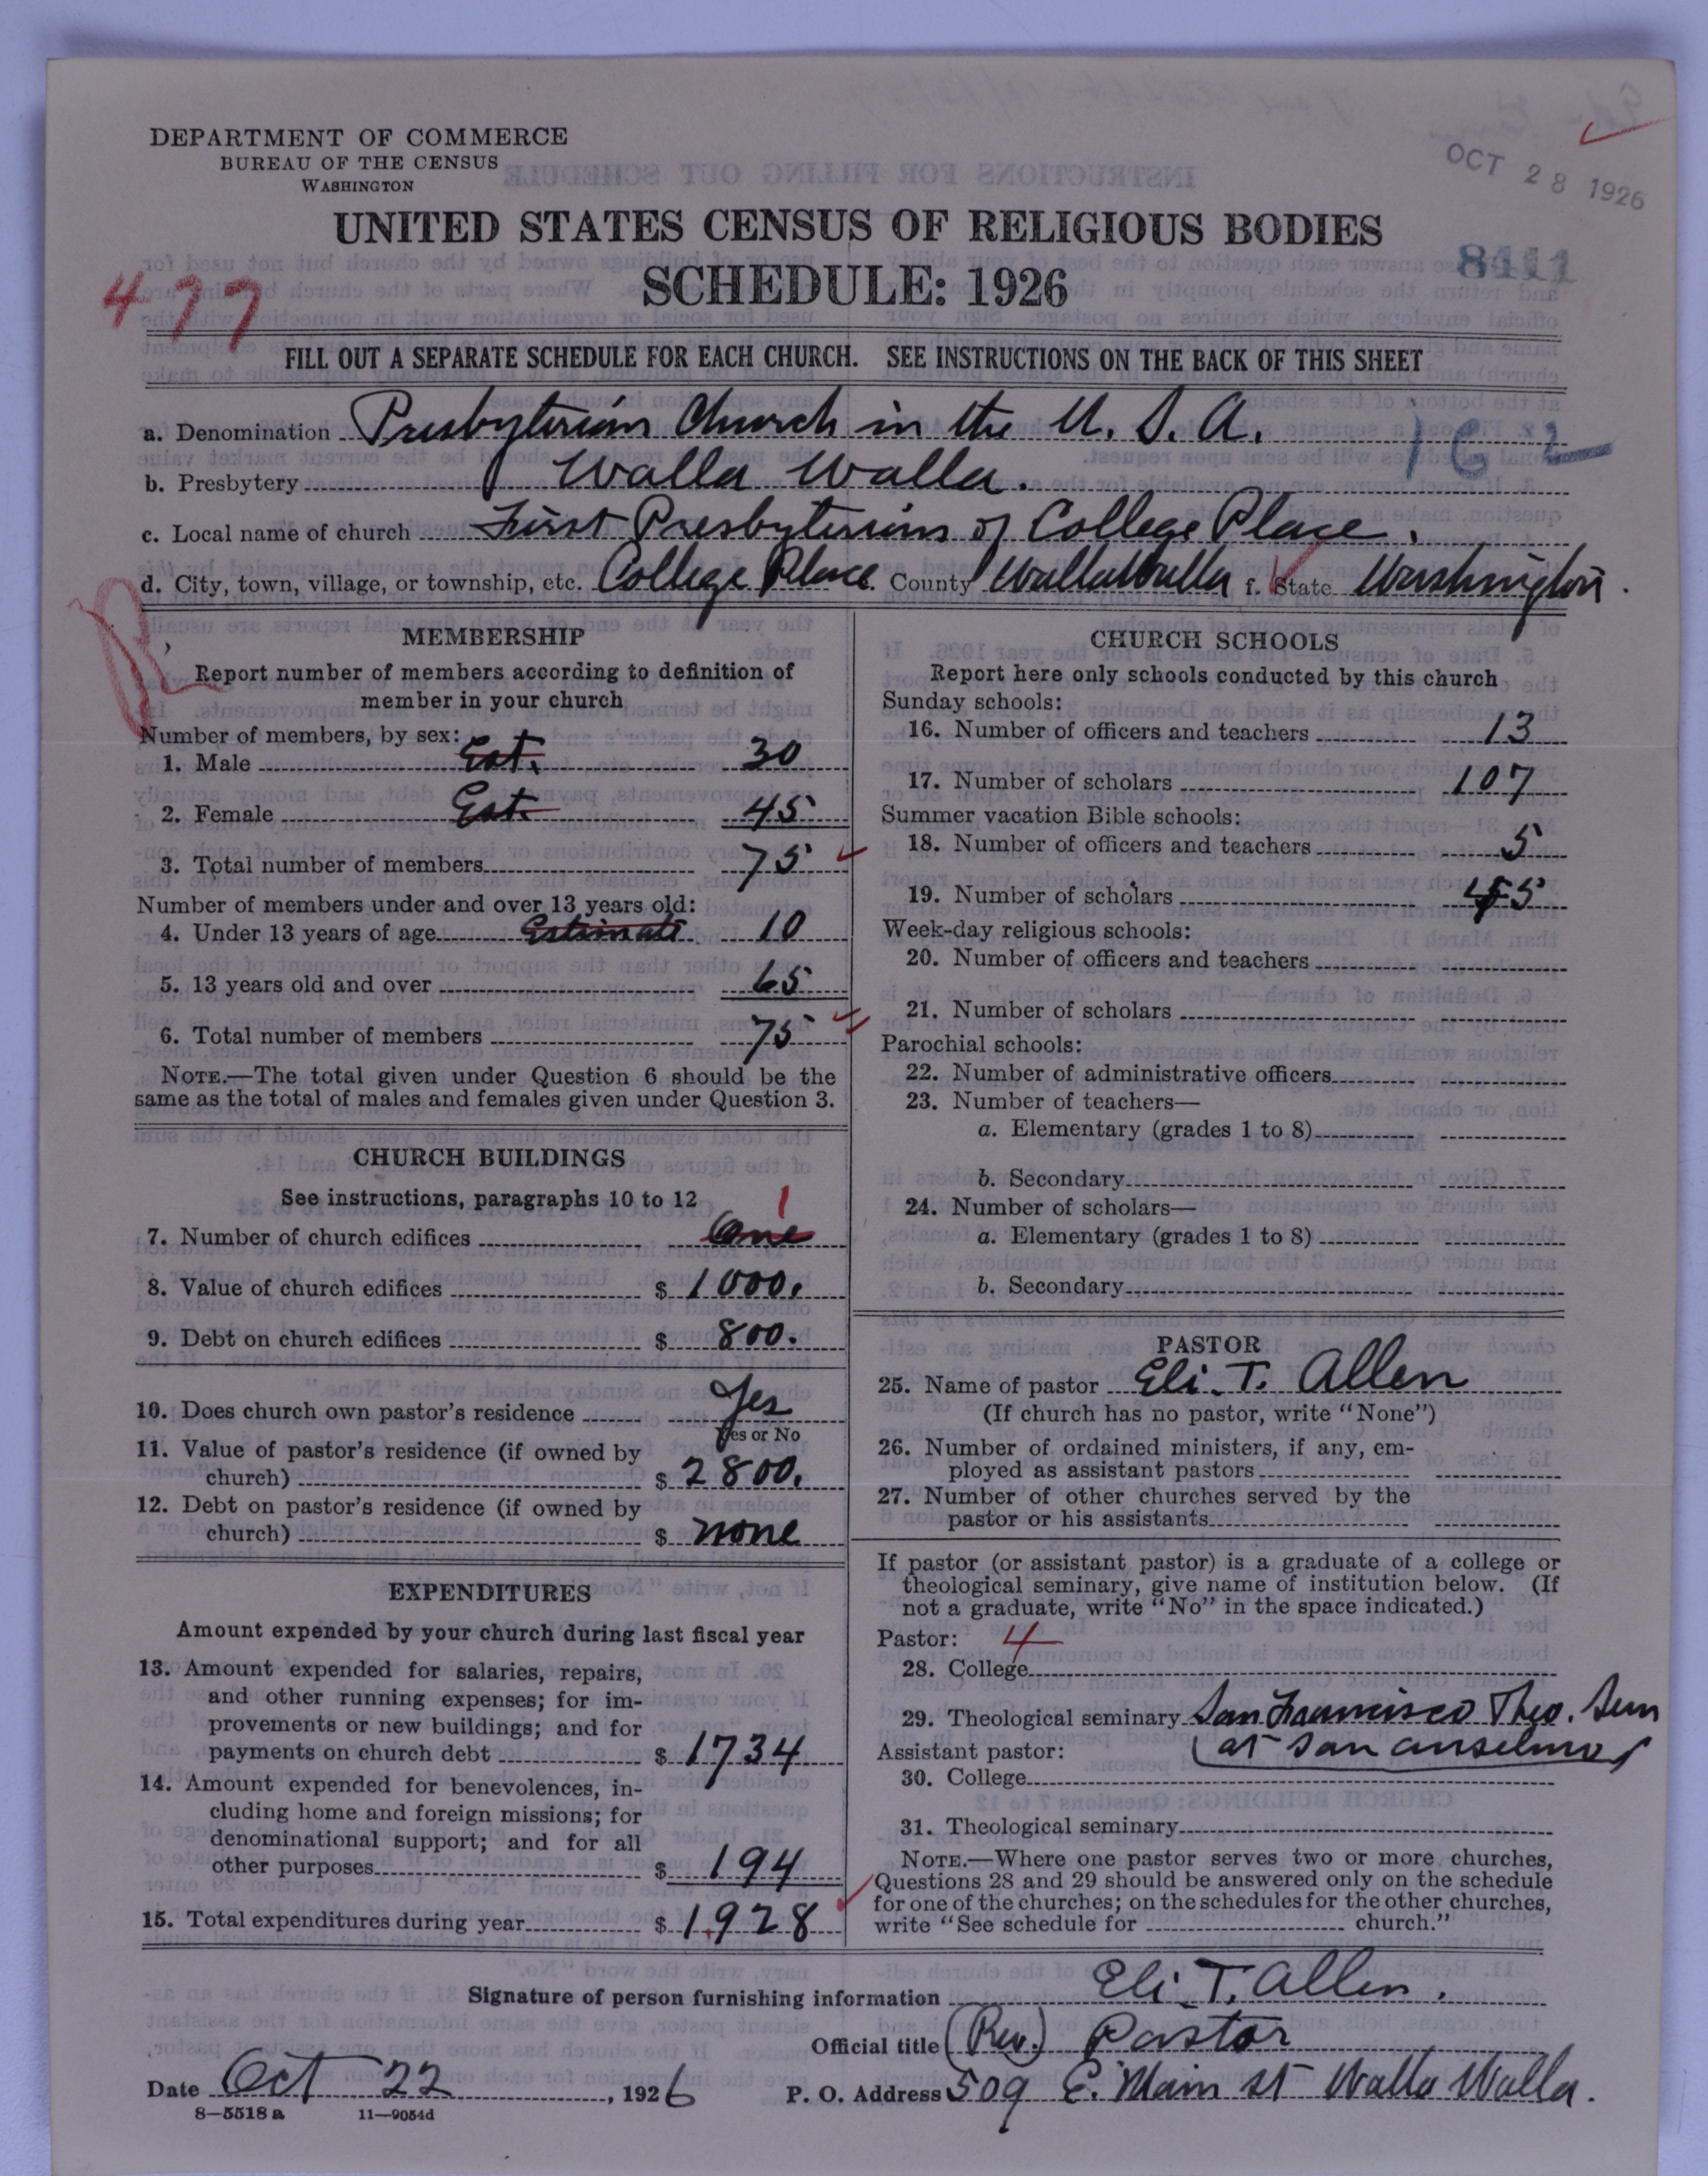 DEPARTMENT OF COMMERCE
BUREAU OF THE CENSUS
WASHINGTON
OCT 28 1926
UNITED STATES CENSUS OF RELIGIOUS BODIES
8411
SCHEDULE: 1926
477
FILL OUT A SEPARATE SCHEDULE FOR EACH CHURCH. SEE INSTRUCTIONS ON THE BACK OF THIS SHEET
a. Denomination Presbyterian Church in the U. S. A.
162
b. Presbytery Walla Walla.
c. Local name of church First Presbyterian of College Place.
d. City, town, village, or township, etc. College Place e. County Walla Walla f. State Washington.
MEMBERSHIP
Report number of members according to definition of
member in your church
Number of members, by sex:
1. Male Est. 30
2. Female Est. 45
3. Total number of members 75
Number of members under and over 13 years old:
4. Under 13 years of age Estimate 10
5. 13 years old and over 65
6. Total number of members 75
NOTE.—The total given under Question 6 should be the
same as the total of males and females given under Question 3.
CHURCH BUILDINGS
See instructions, paragraphs 10 to 12
1
7. Number of church edifices One
8. Value of church edifices $ 1000.
9. Debt on church edifices $ 800.
10. Does church own pastor's residence Yes
Yes or No
11. Value of pastor's residence (if owned by
church) $ 2800.
12. Debt on pastor's residence (if owned by
church) $ none
EXPENDITURES
Amount expended by your church during last fiscal year
13. Amount expended for salaries, repairs,
and other running expenses; for im-
provements or new buildings; and for
payments on church debt $ 1734
14. Amount expended for benevolences, in-
cluding home and foreign missions; for
denominational support; and for all
other purposes $ 194
15. Total expenditures during year $ 1928
CHURCH SCHOOLS
Report here only schools conducted by this church
Sunday schools:
16. Number of officers and teachers 13
17. Number of scholars 107
Summer vacation Bible schools:
18. Number of officers and teachers 5
19. Number of scholars 45
Week-day religious schools:
20. Number of officers and teachers
21. Number of scholars
Parochial schools:
22. Number of administrative officers
23. Number of teachers—
a. Elementary (grades 1 to 8)
b. Secondary
24. Number of scholars—
a. Elementary (grades 1 to 8)
b. Secondary
PASTOR
25. Name of pastor Eli. T. Allen
(If church has no pastor, write "None")
26. Number of ordained ministers, if any, em-
ployed as assistant pastors
27. Number of other churches served by the
pastor or his assistants
If pastor (or assistant pastor) is a graduate of a college or
theological seminary, give name of institution below. (If
not a graduate, write "No" in the space indicated.)
Pastor: 4
28. College
29. Theological seminary San Francisco Theo. Sem
at San Anselmo
Assistant pastor:
30. College
31. Theological seminary
NOTE.—Where one pastor serves two or more churches,
Questions 28 and 29 should be answered only on the schedule
for one of the churches; on the schedules for the other churches,
write "See schedule for church."
Signature of person furnishing information Eli T. Allen.
Official title (Rev.) Pastor
Date Oct 22, 1926 P. O. Address 509 E. Main st Walla Walla.
8—5518 a 11—9054d